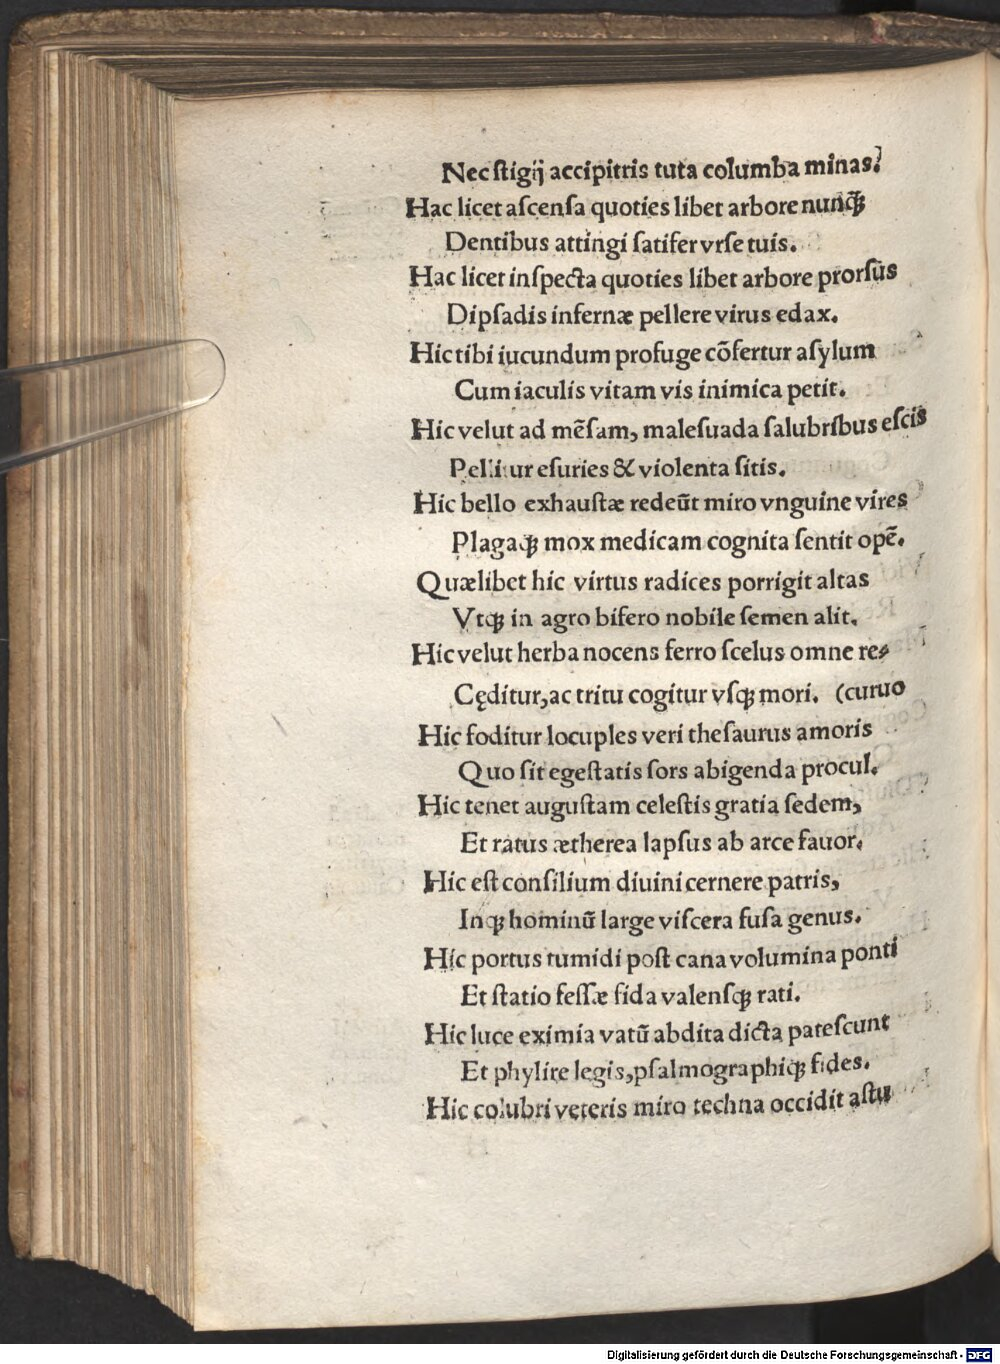 Nec ſtigij accipitris tuta columba minas?
Hac licet aſcenſa quoties libet arbore nunꝙ̃
Dentibus attingi ſatifer vrſe tuis.
Hac licet inſpecta quoties libet arbore prorſus̃
Dipſadis infernæ pellere virus edax.
Hic tibi iucundum profuge cõfertur aſylum
Cum iaculis vitam vis inimica petit.
Hic velut ad mẽſam, maleſuada ſalubrſbus eſcis
Pellitur eſuries & violenta ſitis.
Hic bello exhauſtæ redeũt miro vnguine vires
Plagaꝗ mox medicam cognita ſentit opẽ.
Quælibet hic virtus radices porrigit altas
Vtꝗ in agro bifero nobile ſemen alit.
Hic velut herba nocens ferro ſcelus omne re⸗
Cęditur, ac tritu cogitur vſꝗ mori. (curuo
Hic foditur locuples veri theſaurus amoris
Quo ſit egeſtatis ſors abigenda procul.
Hic tenet auguſtam celeſtis gratia ſedem,
Et ratus ætherea lapſus ab arce fauor.
Hic eſt conſilium diuini cernere patris,
Inꝗ hominũ large viſcera fuſa genus.
Hic portus tumidi poſt cana volumina ponti
Et ſtatio feſſæ fida valenſꝗ rati.
Hic luce eximia vatũ abdita dicta pateſcunt
Et phylire legis, pſalmographiꝗ fides.
Hic colubri veteris miro techna occidit aſtu
Digitalisierung gefördert durch die Deutsche Forschungsgemeinschaft - DFG